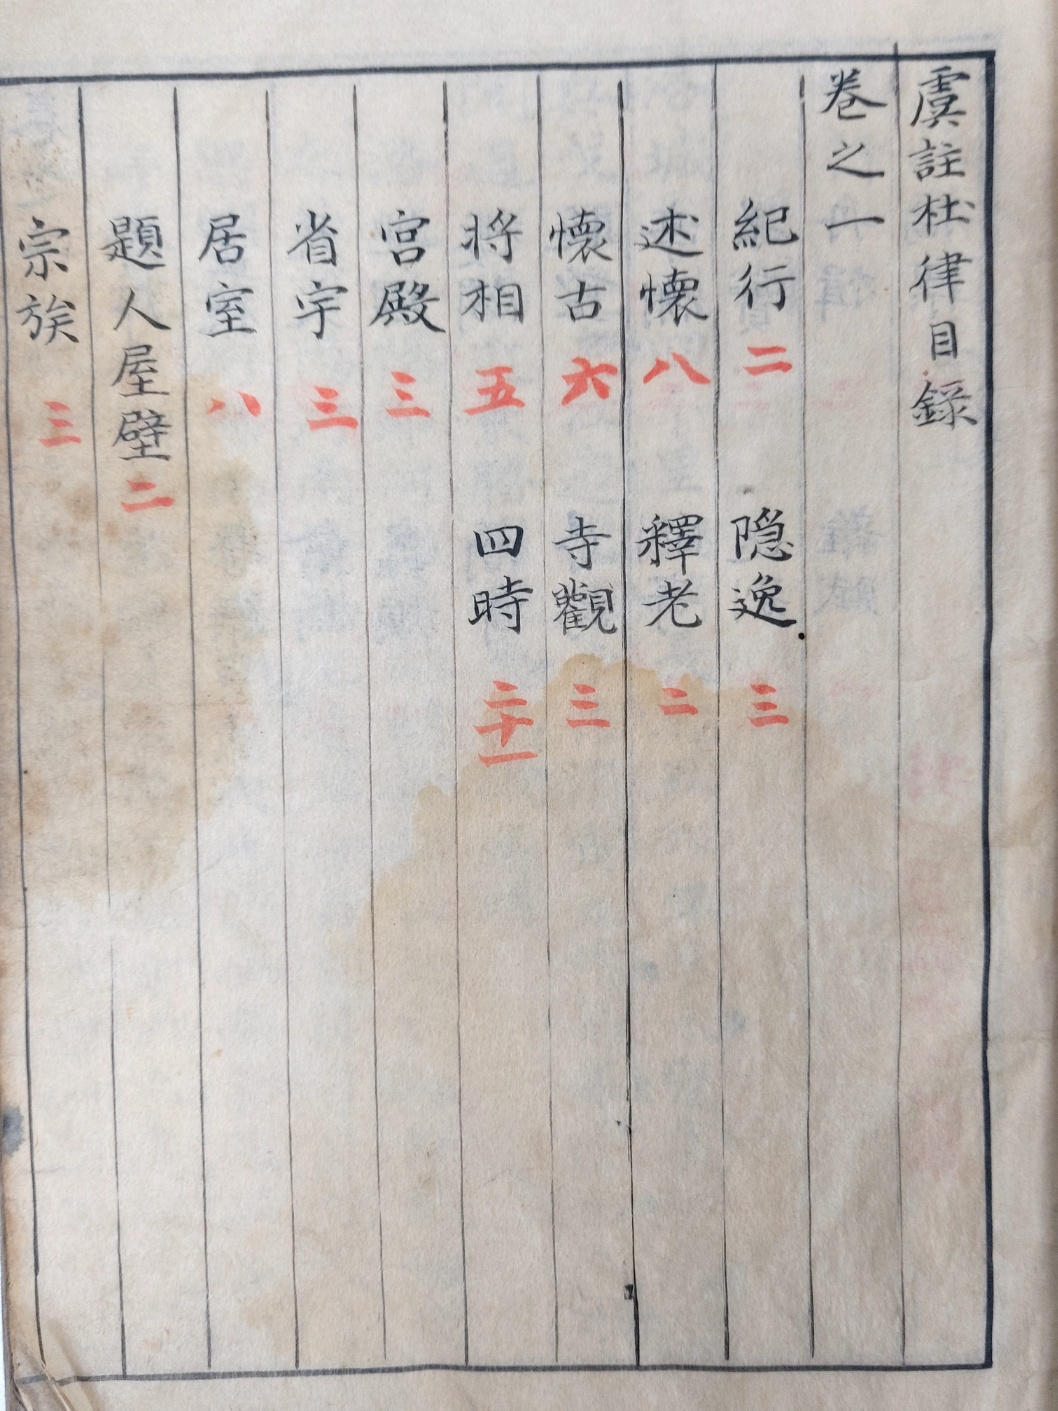 虞註杜律目録
卷之一
紀行 二 隐逸 三
述懷 八 釋老 二
懷古 六 寺觀 三
将相 五 四時 二十一
宫殿 三
省宇 三
居室 八
題人屋壁 二
宗族 三